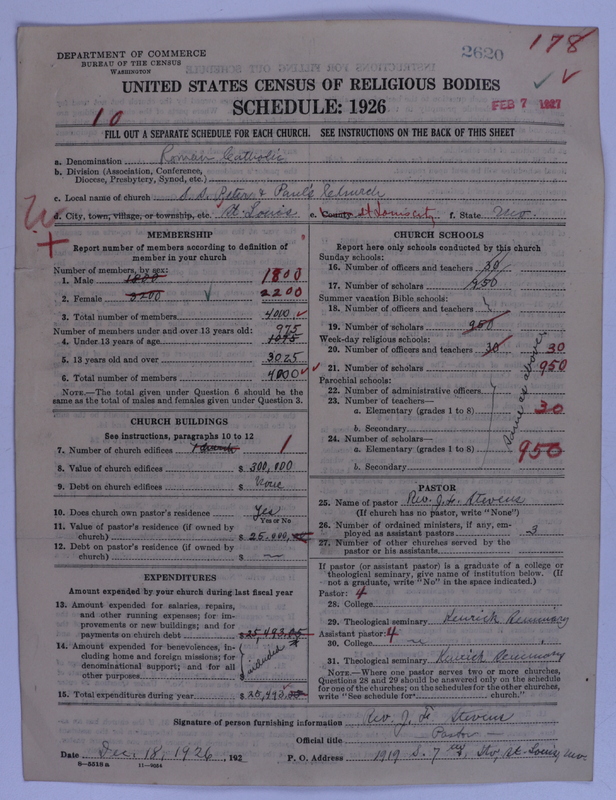 DEPARTMENT OF COMMERCE
BUREAU OF THE CENSUS
WASHINGTON
2620
178
UNITED STATES CENSUS OF RELIGIOUS BODIES
SCHEDULE: 1926
FEB 7 1927
10
FILL OUT A SEPARATE SCHEDULE FOR EACH CHURCH. SEE INSTRUCTIONS ON THE BACK OF THIS SHEET
a. Denomination Roman Catholic
b. Division (Association, Conference, Diocese, Presbytery, Synod, etc.)
c. Local name of church S.S. Peter & Paul's Church
d. City, town, village, or township, etc. St. Louis e. County St Louis city f. State Mo.
MEMBERSHIP
Report number of members according to definition of member in your church
Number of members, by sex:
1. Male 1800 1800
2. Female 2200 2200
3. Total number of members 4000
Number of members under and over 13 years old:
975
4. Under 13 years of age 1075
5. 13 years old and over 3025
6. Total number of members 4000
NOTE.—The total given under Question 6 should be the same as the total of males and females given under Question 3.
CHURCH BUILDINGS
See instructions, paragraphs 10 to 12
7. Number of church edifices 1 church 1
8. Value of church edifices $ 300,000
9. Debt on church edifices $ None
10. Does church own pastor's residence Yes
Yes or No
11. Value of pastor's residence (if owned by church) $ 25.000,
12. Debt on pastor's residence (if owned by church) $ —
EXPENDITURES
Amount expended by your church during last fiscal year
13. Amount expended for salaries, repairs, and other running expenses; for improvements or new buildings; and for payments on church debt $ 25,493.05
14. Amount expended for benevolences, including home and foreign missions; for denominational support; and for all other purposes included
15. Total expenditures during year $ 25,493
CHURCH SCHOOLS
Report here only schools conducted by this church
Sunday schools:
16. Number of officers and teachers 30
17. Number of scholars 950
Summer vacation Bible schools:
18. Number of officers and teachers
19. Number of scholars 950
Week-day religious schools:
20. Number of officers and teachers 30 30
21. Number of scholars 950
Parochial schools:
22. Number of administrative officers
23. Number of teachers—
a. Elementary (grades 1 to 8) 30
b. Secondary
24. Number of scholars—
a. Elementary (grades 1 to 8) 950
b. Secondary
Same as above
PASTOR
25. Name of pastor Rev. J. F. Stevens
(If church has no pastor, write "None")
26. Number of ordained ministers, if any, employed as assistant pastors 3
27. Number of other churches served by the pastor or his assistants
If pastor (or assistant pastor) is a graduate of a college or theological seminary, give name of institution below. (If not a graduate, write "No" in the space indicated.)
Pastor: 4
28. College
29. Theological seminary Kenrick Seminary
Assistant pastor: 4
30. College
31. Theological seminary Kenrick Seminary
NOTE.—Where one pastor serves two or more churches, Questions 28 and 29 should be answered only on the schedule for one of the churches; on the schedules for the other churches, write "See schedule for church."
Signature of person furnishing information Rev. J. F. Stevens
Official title Pastor
Date Dec. 18, 1926, 192 P. O. Address 1919 S. 7th St., St. Louis, Mo.
8—5518a 11—9054